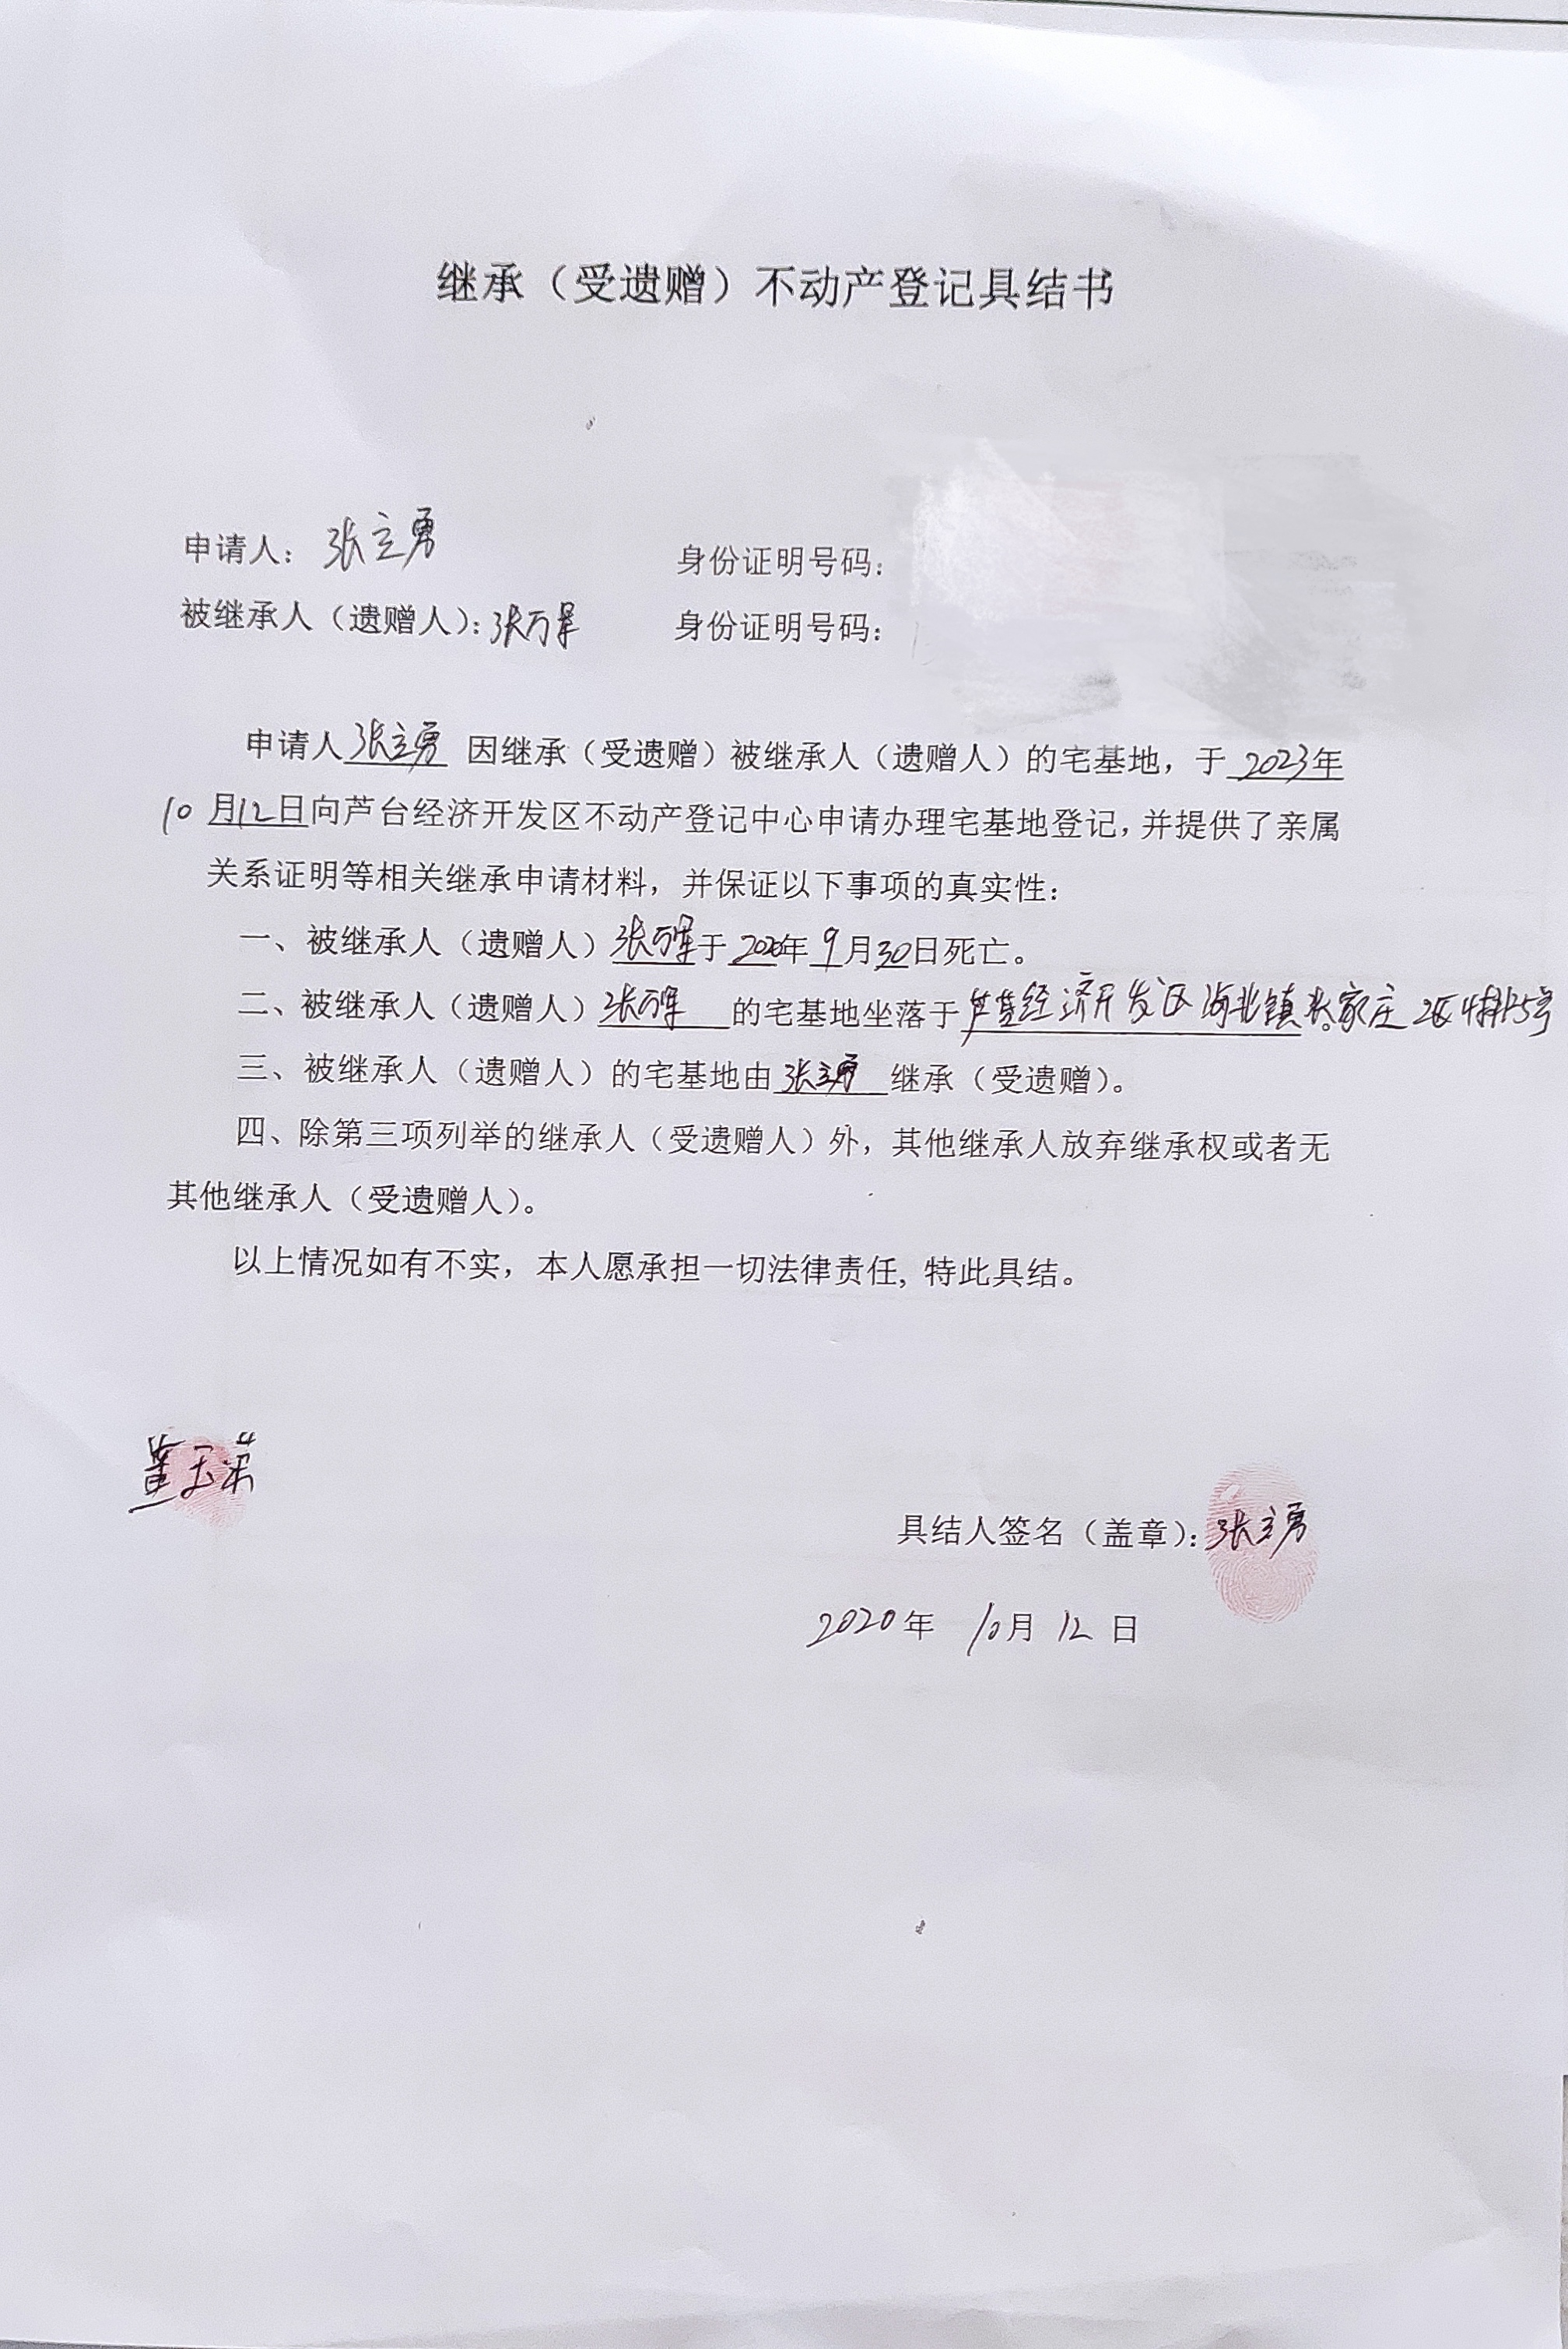 继承（受遗赠）不动产登记具结书
申请人：张立勇 身份证明号码：
被继承人（遗赠人）：张万军 身份证明号码：
申请人张立勇 因继承（受遗赠）被继承人（遗赠人）的宅基地，于 2023年
10 月12日向芦台经济开发区不动产登记中心申请办理宅基地登记，并提供了亲属
关系证明等相关继承申请材料，并保证以下事项的真实性：
一、被继承人（遗赠人）张万军于2020年 9月30日死亡。
二、被继承人（遗赠人）张万军 的宅基地坐落于芦台经济开发区海北镇张家庄2区4排5号
三、被继承人（遗赠人）的宅基地由张立勇 继承（受遗赠）。
四、除第三项列举的继承人（受遗赠人）外，其他继承人放弃继承权或者无
其他继承人（受遗赠人）。
以上情况如有不实，本人愿承担一切法律责任，特此具结。
董玉荣
具结人签名（盖章）：张立勇
2020年 10月 12 日